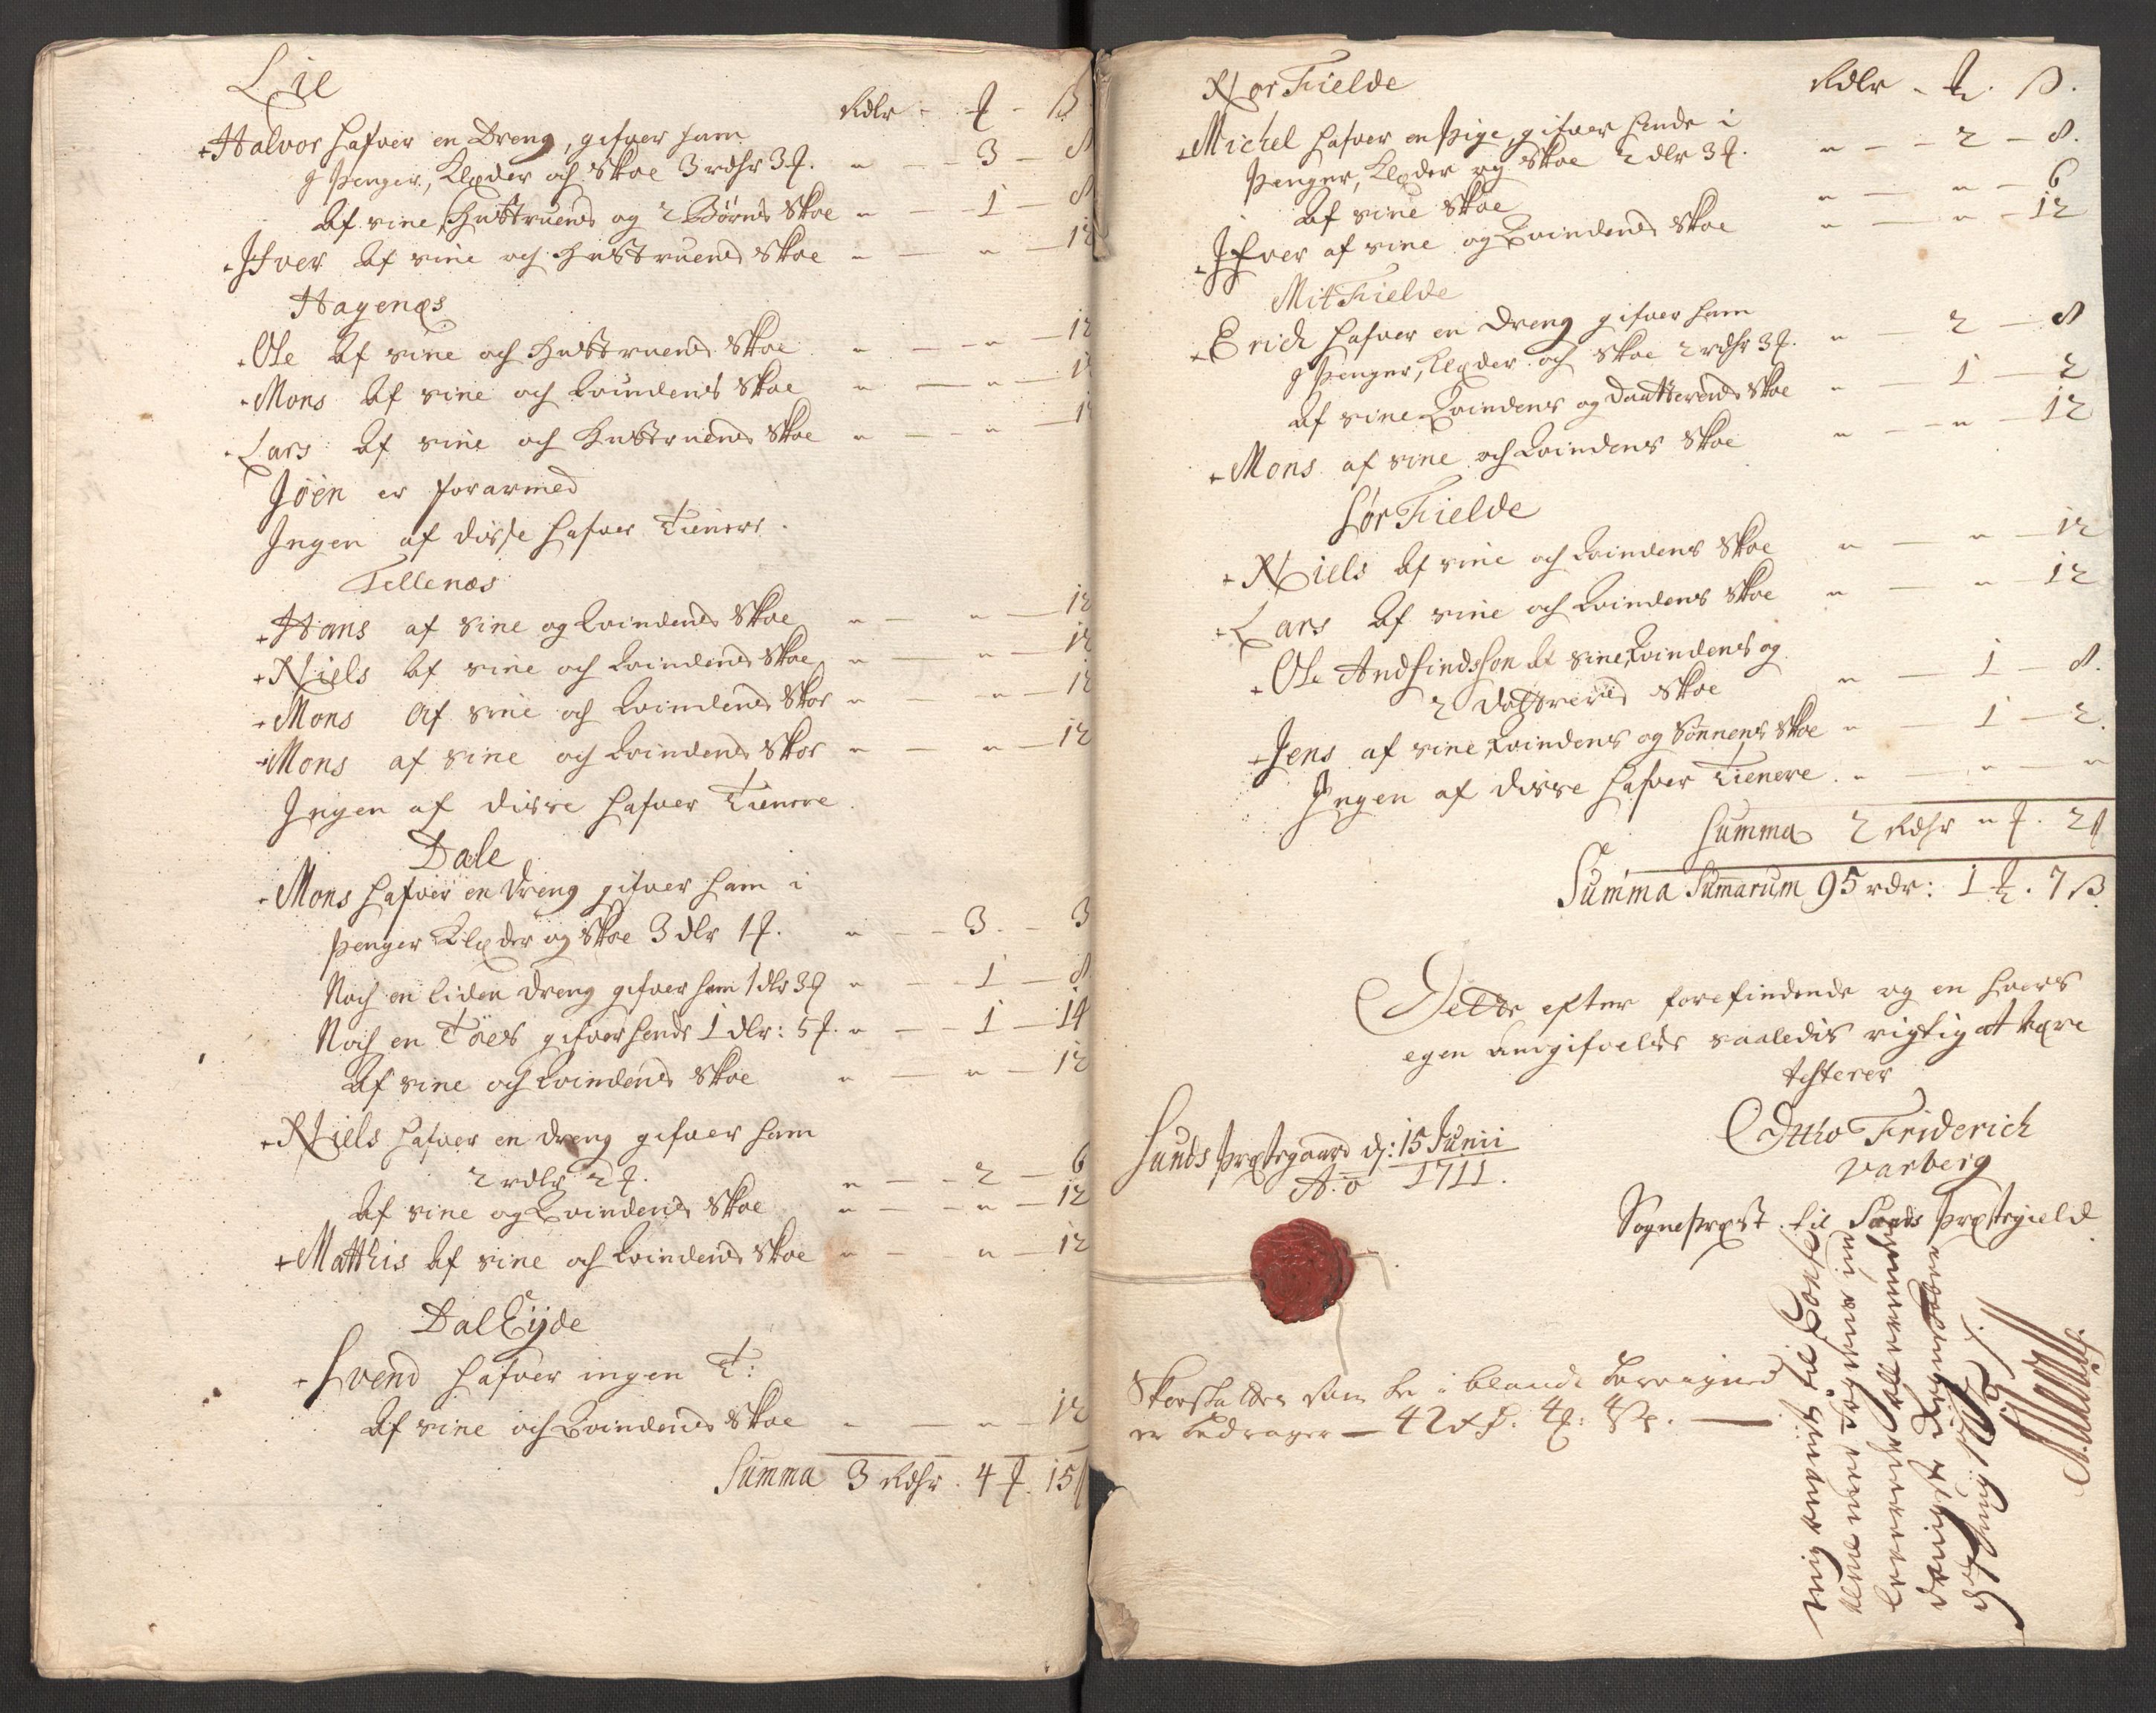 Lie
Rdlr - ₰ - ß
+ Halvor hafver en Dreng, gifver ham
J Penger, Klæder och Skoe 3 rdhr 3 ₰. " - 3 - 8
Af sine, Hustruens og 2 Børns Skoe " - 1 - 8
+ Ifver Af sine och Hustruens Skoe " - " - 12
Hagenæs
+ Ole Af sine och Hustruens Skoe " - " - 12
+ Mons Af sine och Qvindens Skoe " - " - 12
+ Lars Af sine och Hustruens Skoe " - " - 12
Joen er forarmed
Ingen af disse hafver Tienere.
Tellenæs
+ Hans af sine og Qvindens Skoe " - " - 12
+ Niels Af sine och Qvindens Skoe " - " - 12
+ Mons Af sine och Qvindens Skoe " - " - 12
+ Mons af sine och Qvindens Skoe " - " - 12
Ingen af disse hafver Tienere.
Dale
+ Mons hafver en Dreng gifver ham i
Penger Klæder og Skoe 3 dlr 1 ₰. " - 3 - 3
Noch en liden Dreng gifver ham 1 dlr 3 ₰ " - 1 - 8
Noch en Tøes gifver hende 1 dlr: 5 ₰. " - 1 - 14
Af sine och Qvindens Skoe " - " - 12
+ Niels hafver en dreng gifver ham
2 rdlr 2 ₰. " - 2 - 6
Af sine og Qvindens Skoe " - " - 12
+ Matthis Af sine och Qvindens Skoe " - " - 12
Dal Eijde
+ Svend hafver ingen T:
Af sine och Qvindens Skoe " - " - 12
Summa 3 Rdhr. 4 ₰. 15 ß
Nor Fielde
Rdlr - ₰. ß.
+ Michel hafver en Pige, gifver hende i
Penger, Klæder og Skoe 2 dlr 3 ₰. " - 2 - 8.
Af sine Skoe " - " - 6
+ Ifver af sine og Qvindens Skoe " - " - 12
Mit Fielde
+ Erich hafver en Dreng gifver ham
J Penger, Klæder och Skoe 2 rdhr 3 ₰. " - 2 - 8
Af sine Qvindens og Daatterens Skoe " - 1 - 2
+ Mons af sine och Qvindens Skoe " - " - 12
Sør Fielde
+ Niels Af sine och Qvindens Skoe " - " - 12
+ Lars Af sine och Qvindens Skoe " - " - 12
+ Ole Andfindsson Af sine, Qvindens og
2 Døtrenes Skoe " - 1 - 8.
+ Jens af sine, Qvindens og Sønnens Skoe " - 1 - 2.
Ingen af disse hafver Tienere. " - " - "
Summa 2 Rdhr " ₰. 2 ß
Summa Sumarum 95 rdr: 1 ₰. 7 ß
Dette efter forefindende og en hvers
egen Angifvelse saaledis rigtig at være
testerer
Ottho Friderich
Varberg
Sognepræst til Sunds Præstegield
Sunds Præstegaard d: 15 Junii
A.o 1711.
Skoeskatten som er i blandt
er bedrager — 42 rd: 4 ₰: 4 ß. —